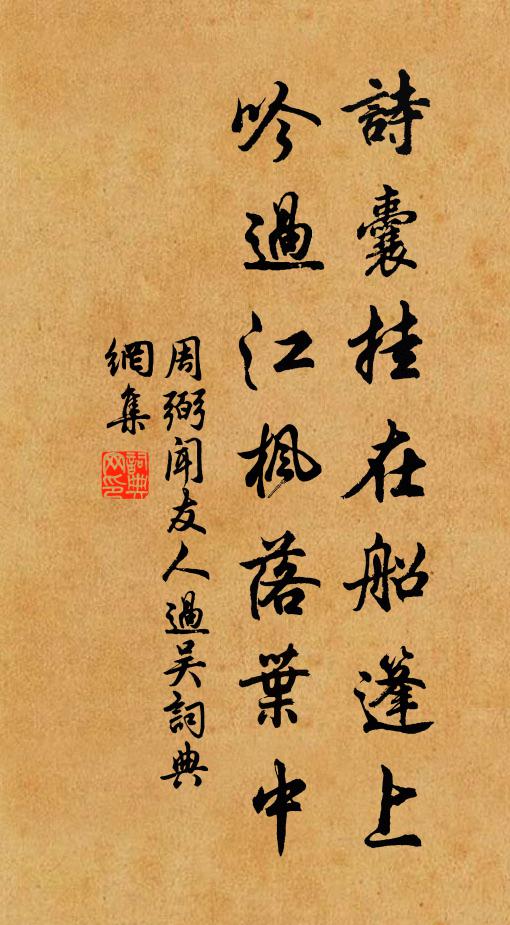 詩囊挂在船篷上
吟過江楓落葉中
周弼聞友人過吴詞典
網集
詞典網印